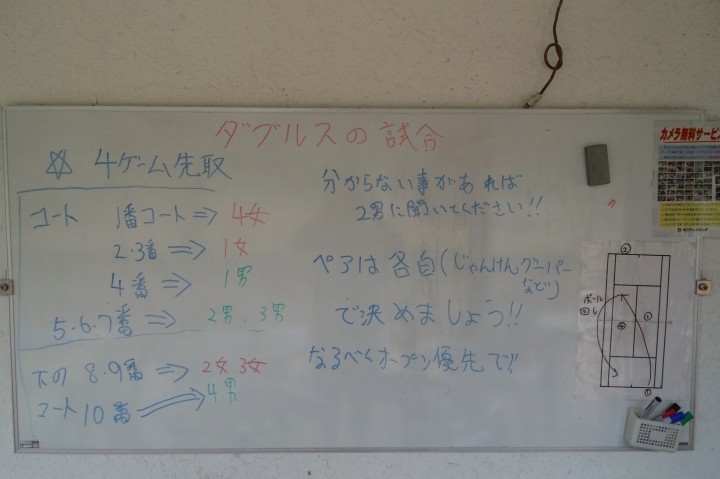 ダブルスの試合
☆ 4ゲーム先取
コート 1番コート⇒ 4女
2・3番⇒ 1女
4番⇒ 1男
5・6・7番⇒ 2男・3男
下の 8・9番⇒ 2女 3女
コート 10番⇒ 4男
分からない事があれば
2男に聞いてください!!
ペアは各自(じゃんけん グーパー
など)
で決めましょう!!
なるべくオープン優先で!!
カメラ無料サービス
ボール
回し
②
①